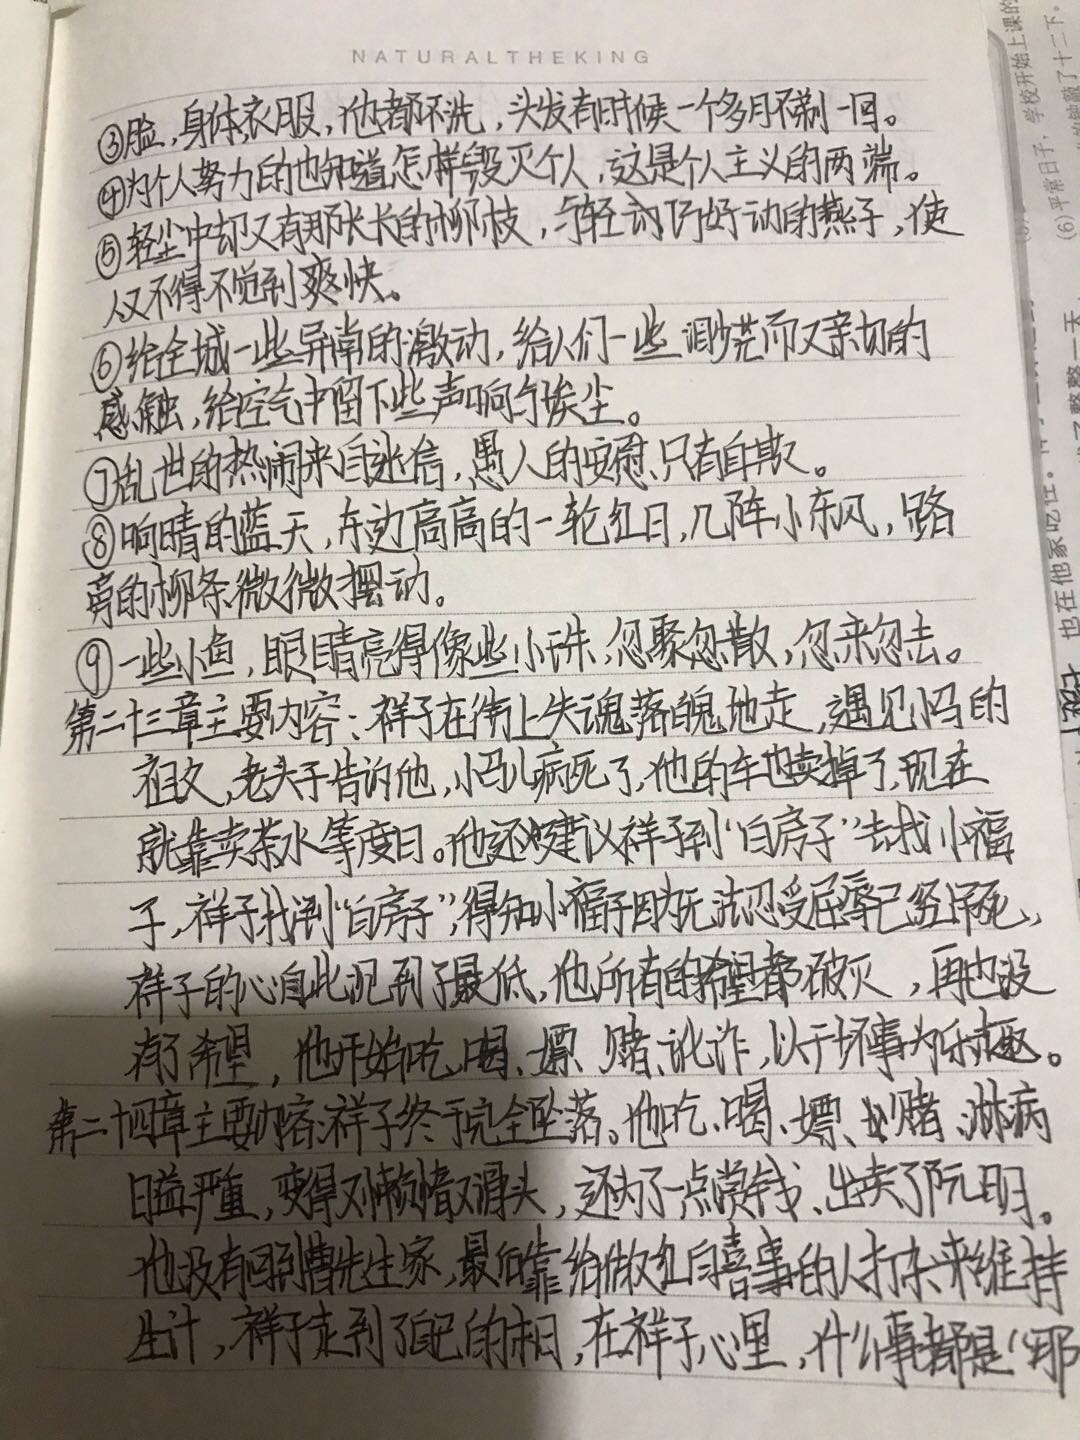 NATURALTHEKING
③脸,身体,衣服,他都不洗,头发有时候一个多月不剃一回。
④为个人努力的也知道怎样毁灭个人,这是个人主义的两端。
⑤轻尘中却又有那长长的柳枝,与轻动巧好动的燕子,使
人又不得不觉到爽快。
⑥给全城一些异南的激动,给人们一些渺茫而又亲切的
感触,给空气中留下些声响与埃尘。
⑦乱世的热闹来自迷信,愚人的安慰只有自欺。
⑧响晴的蓝天,东边高高的一轮红日,几阵小东风,路
旁的柳条微微摆动。
⑨一些小鱼,眼睛亮得像些小珠,忽聚忽散,忽来忽去。
第二十三章主要内容:祥子在街上失魂落魄地走,遇见小马的
祖父,老头子告诉他,小马儿病死了,他的车也卖掉了,现在
就靠卖茶水等度日。他还建议祥子到“白房子”去找小福
子,祥子找到“白房子”,得知小福子因无法忍受屈辱已经吊死,
祥子的心自此沉到了最低,他所有的希望都破灭,再也没
有了希望,他开始吃、喝、嫖、赌、讹诈,以干坏事为乐趣。
第二十四章主要内容:祥子终于完全坠落。他吃、喝、嫖、赌、淋病
日益严重,变得又懒惰又滑头,还为了一点赏钱、出卖了阮明。
他没有回到曹先生家,最后靠给做红白喜事的人打杂来维持
生计,祥子走到了自己的末日,在祥子心里,什么事都是“那
学校开始上课的
(6)平常日子,
敲了十二下。
了整整一天
也在他家吃住。